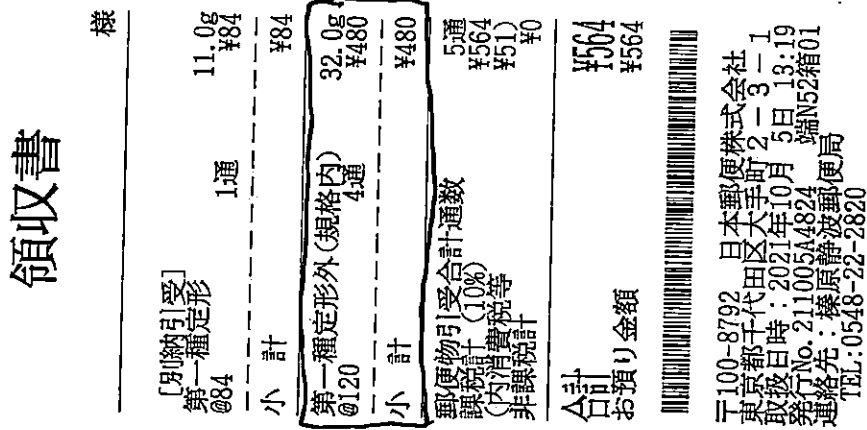 領収書
様
[別納引受]
第一種定形 11.0g
@84 1通 ¥84
小 計 ¥84
第一種定形外(規格内) 32.0g
@120 4通 ¥480
小 計 ¥480
郵便物引受合計通数 5通
課税計(10%) ¥564
(内消費税等 ¥51)
非課税計 ¥0
合計 ¥564
お預り金額 ¥564
〒100-8792 日本郵便株式会社
東京都千代田区大手町2-3-1
取扱日時:2021年10月 5日 13:19
発行No.211005A4824 端N52箱01
連絡先:榛原静波郵便局
TEL:0548-22-2820